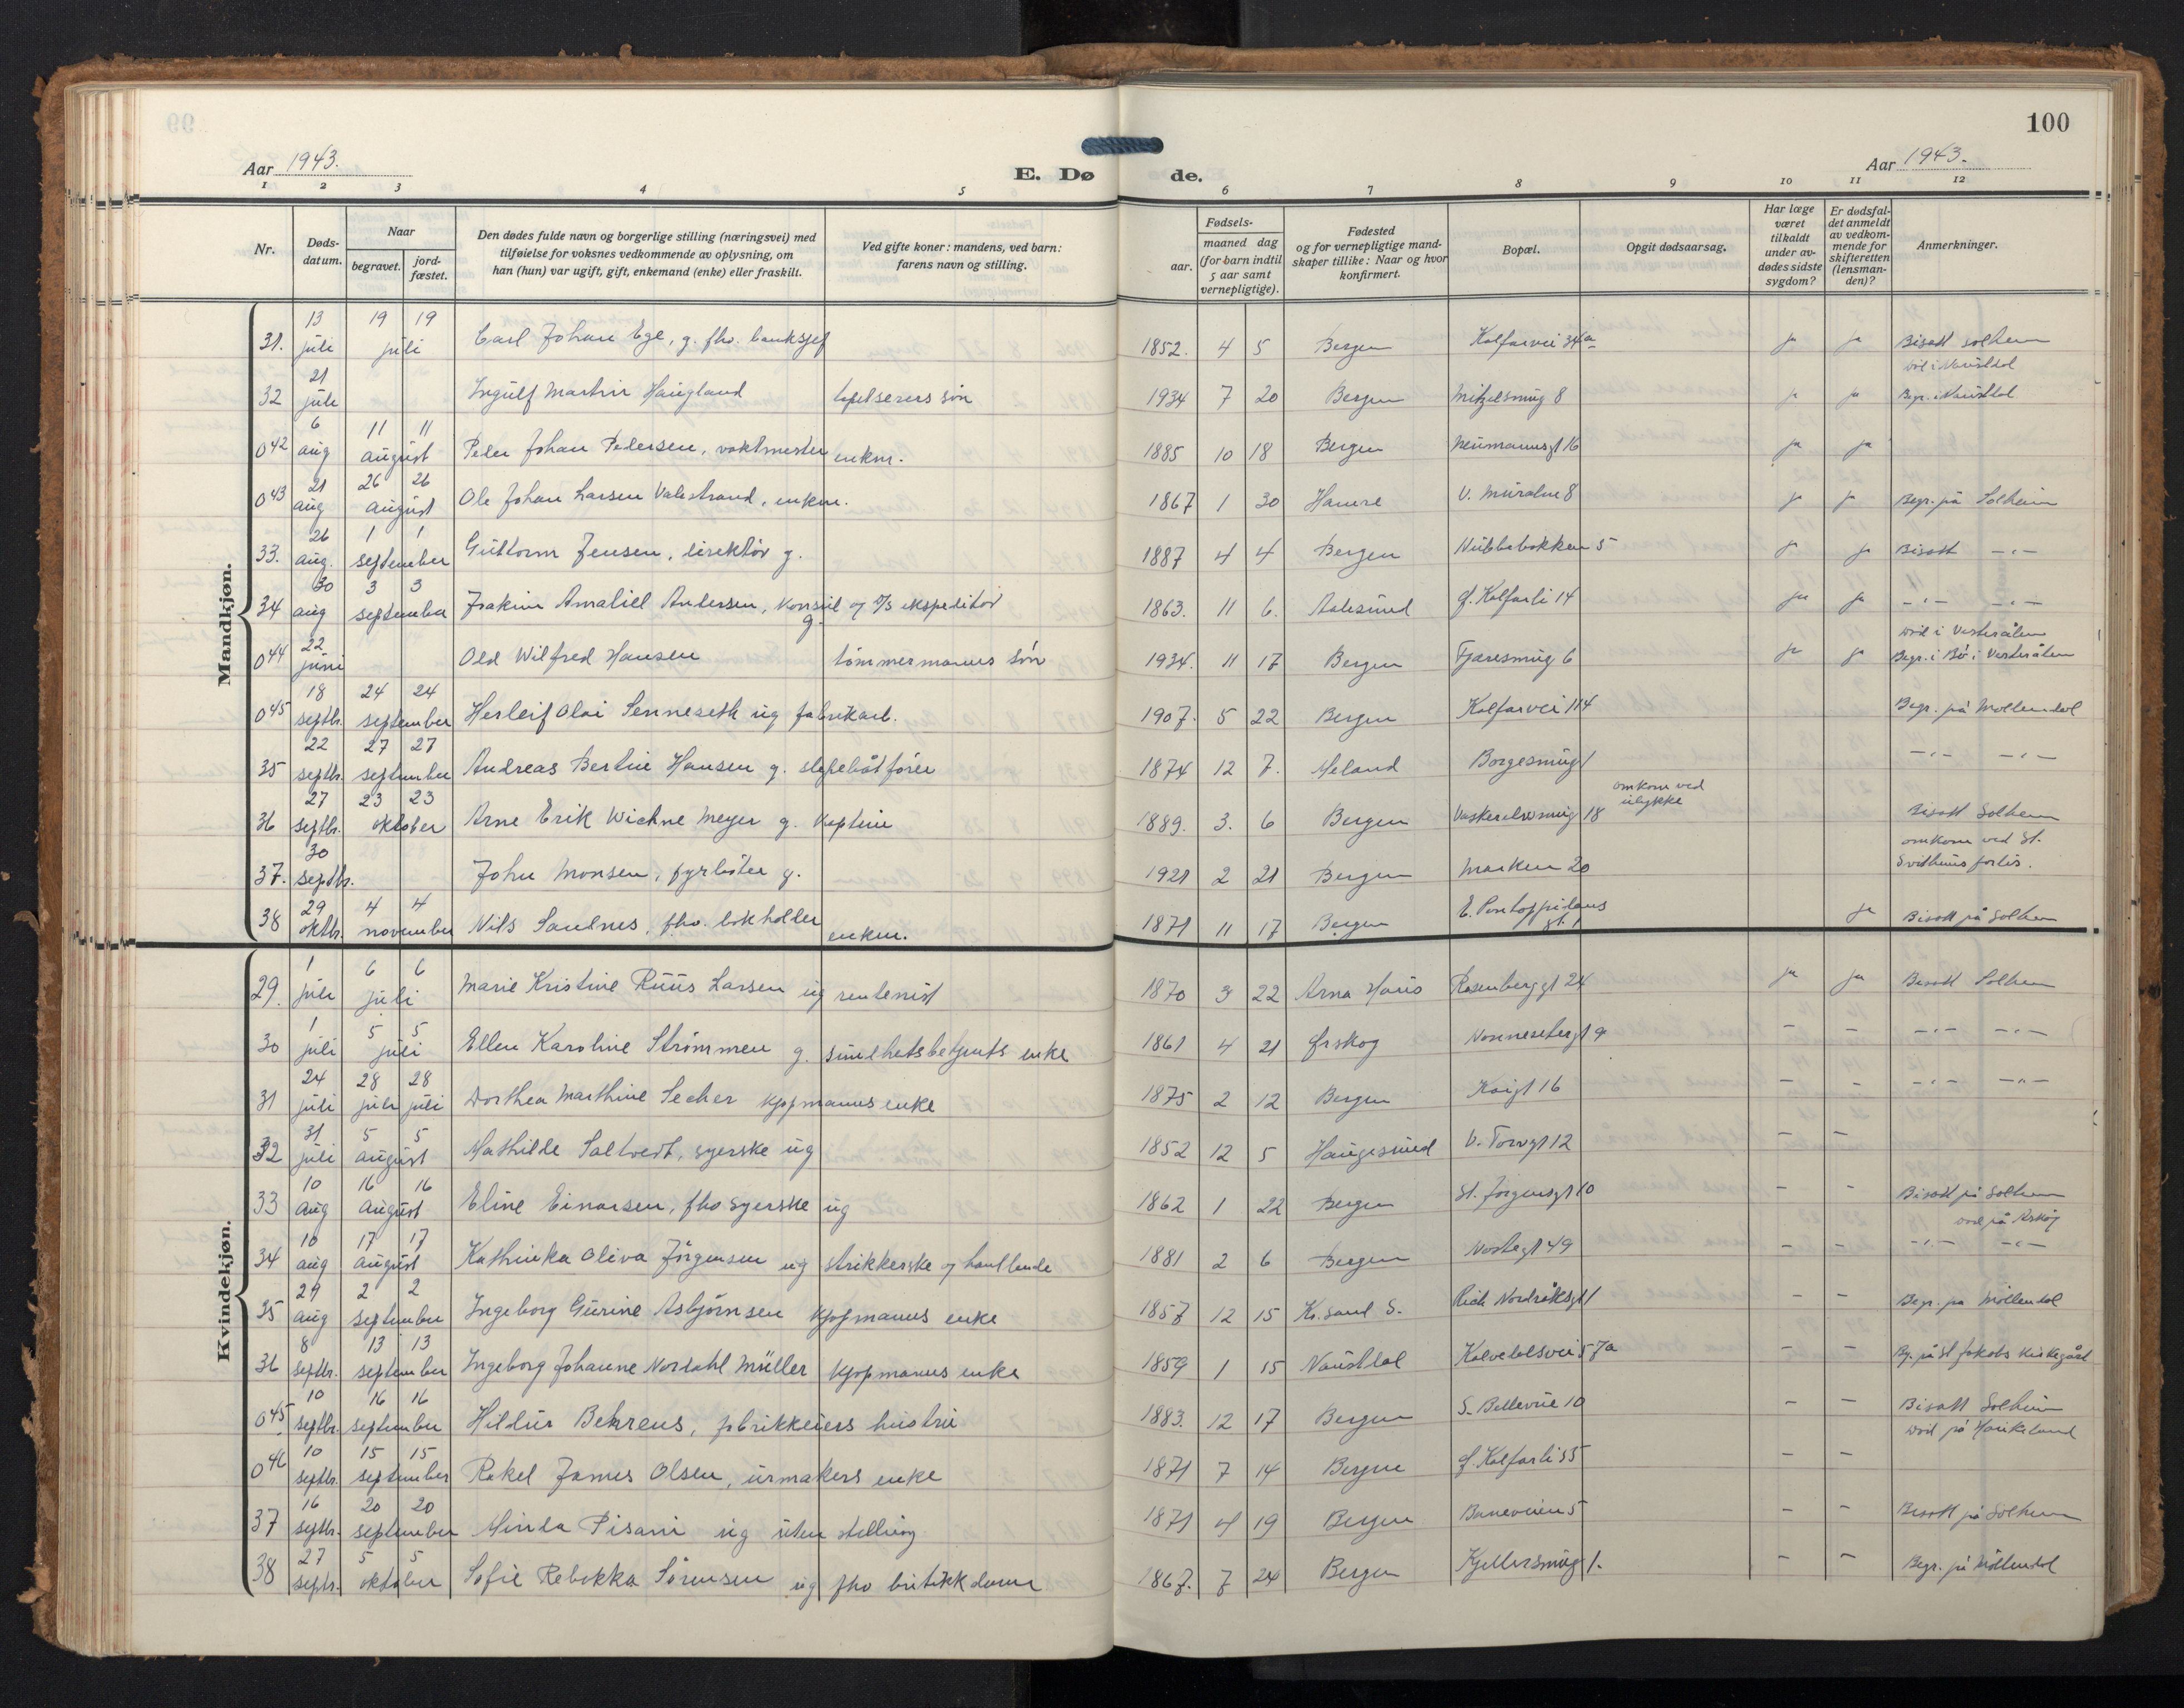 100
Aar 1943.
E. Dø de.
Aar 1943.
1 2 3 4 5 6 7 8 9 10 11 12
Nr.
Døds-datum.
Naar
begravet.
jord-fæstet.
Den dødes fulde navn og borgerlige stilling (næringsvei) med
tilføielse for voksnes vedkommende av oplysning, om
han (hun) var ugift, gift, enkemand (enke) eller fraskilt.
Ved gifte koner: mandens, ved barn:
farens navn og stilling.
Fødsels-
aar.
maaned dag
(for barn indtil
5 aar samt
vernepligtige).
Fødested
og for vernepligtige mand-
skaper tillike: Naar og hvor
konfirmert.
Bopæl.
Opgit dødsaarsag.
Har læge
været
tilkaldt
under av-
dødes sidste
sygdom?
Er dødsfal-
det anmeldt
av vedkom-
mende for
skifteretten
(lensman-
den)?
Anmerkninger.
Mandkjøn.
31. 13 juli 19 19 juli Carl Johan Ege, g. fhv. banksjef 1852. 4 5 Bergen Kalfarvei 34a ja ja Bisatt Solheim
32 21 juli Ingulf Martin Haugland tapetserers søn 1934 7 20 Bergen Mitzelsmug 8 ja ja død i Naustdal Begr. i Naustdal.
042 6 aug 11 11 august Peder Johan Pedersen, vaktmester enkm. 1885 10 18 Bergen Neumannsgt 16 ja ja
043 21 aug 26 26 august Ole Johan Larsen Valestrand, enkm. 1867 1 30 Hamre V. Muralm 8 ja ja Begr. på Solheim
33. 26 aug. 1 1 september Guttorm Jensen, direktør g. 1887 4 4 Bergen Nubbebakken 5 ja ja Bisatt -"-
34 30 aug 3 3 september Joakim Amaliel Andersen, konsul og D/S ekspeditør g. 1863. 11 6. Aalesund Ø. Kalfarli 14 ja ja -"- -"-
044 22 juni Odd Wilfred Hansen tømmermanns søn 1934. 11 17 Bergen Fjæresmug 6 ja ja død i Vesterålen Begr. i Bø i Vesterålen
045 18 septbr. 24 24 september Herleif Olai Senneseth ug fabrikarb. 1907. 5 22 Bergen Kalfarvei 114 Begr. på Møllendal
35 22 septbr. 27 27 september Andreas Bertin Hansen g. slepebåtfører 1874 12 7. Meland Borgesmug 1 -"- -"-
36 27 septbr. 23 23 oktober Arne Erik Wichne Meyer g. kaptein 1889. 3. 6 Bergen Vaskerelvsmug 18 omkom ved ulykke Bisatt Solheim
37. 30 septbr. John Monsen, fyrbøter g. 1921 2 21 Bergen Marken 20 omkom ved St. Svithuns forlis.
38 29 oktbr. 4 4 november Nils Sandnes, fhv. bokholder enkm. 1871 11 17 Bergen E. Pontoppidans gt. 1 ja Bisatt på Solheim
Kvindekjøn.
29. 1 juli 6 6 juli Marie Kristine Ruus Larsen ug rentenist 1870 3 22 Arna Haus Rosenberggt 24 ja ja Bisatt Solheim
30 1 juli 5 5 juli Ellen Karoline Strømmen g. sundhetsbetjents enke 1861 4 21 Ørskog Nonnesetergt 9 - - -"- -"-
31 24 juli 28 28 juli juli Dorthea Marthine Secher kjøpmanns enke 1875 2 12 Bergen Kaigt 16 - - -"- -"-
32 31 juli 5 5 august Mathilde Saltvedt, syerske ug 1852 12 5 Haugesund V. Torvgt 12 - -
33 10 aug 16 16 august Eline Einarsen, fhv syerske ug 1862 1 22 Bergen St. Jørgensgt 10 - - Bisatt på Solheim
34 10 aug 17 17 august Kathinka Oliva Jørgensen ug strikkerske og handlende 1881 2 6 Bergen Nøstegt 49 - - død på Askøy -"- -"-
35 29 aug 2 2 september Ingeborg Gurine Asbjørnsen kjøpmanns enke 1857 12 15 Kr. sand S. Rich Nordråksgt 1 - - Begr. på Møllendal
36 8 septbr. 13 13 september Ingeborg Johanne Nordahl Müller kjøpmanns enke 1859 1 15 Naustdal Kalvedalsvei 57a - - Bg. på St Jakobs kirkegård
045 10 septbr. 16 16 september Hildur Behrens, fabrikkeiers hustru 1883. 12 17 Bergen S. Bellevue 10 - - Bisatt Solheim død på Haukeland
046 10 septbr. 15 15 september Rakel James Olsen, urmakers enke 1871 7 14 Bergen Ø. Kalfarli 55 - -
37 16 septbr. 20 20 september Minda Pisani ug uten stilling 1871 4 19 Bergen Baneveien 5 - - Bisatt på Solheim
38 27 septbr. 5 5 oktober Sofie Rebekka Sørensen ug fhv butikkdame 1867. 7 24 Bergen Kjellersmug 1. - - Begr. på Møllendal